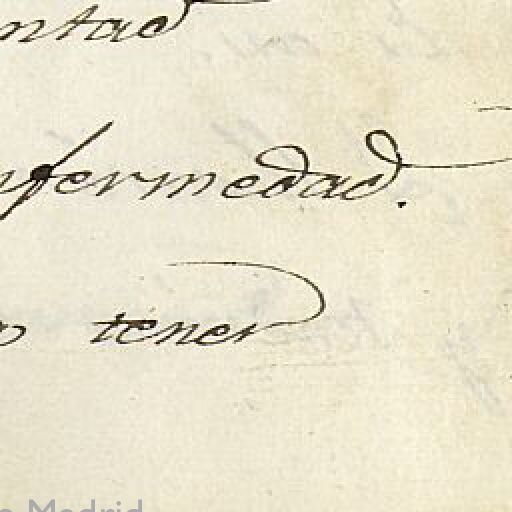 ntad
nfermedad.
tener
Madrid